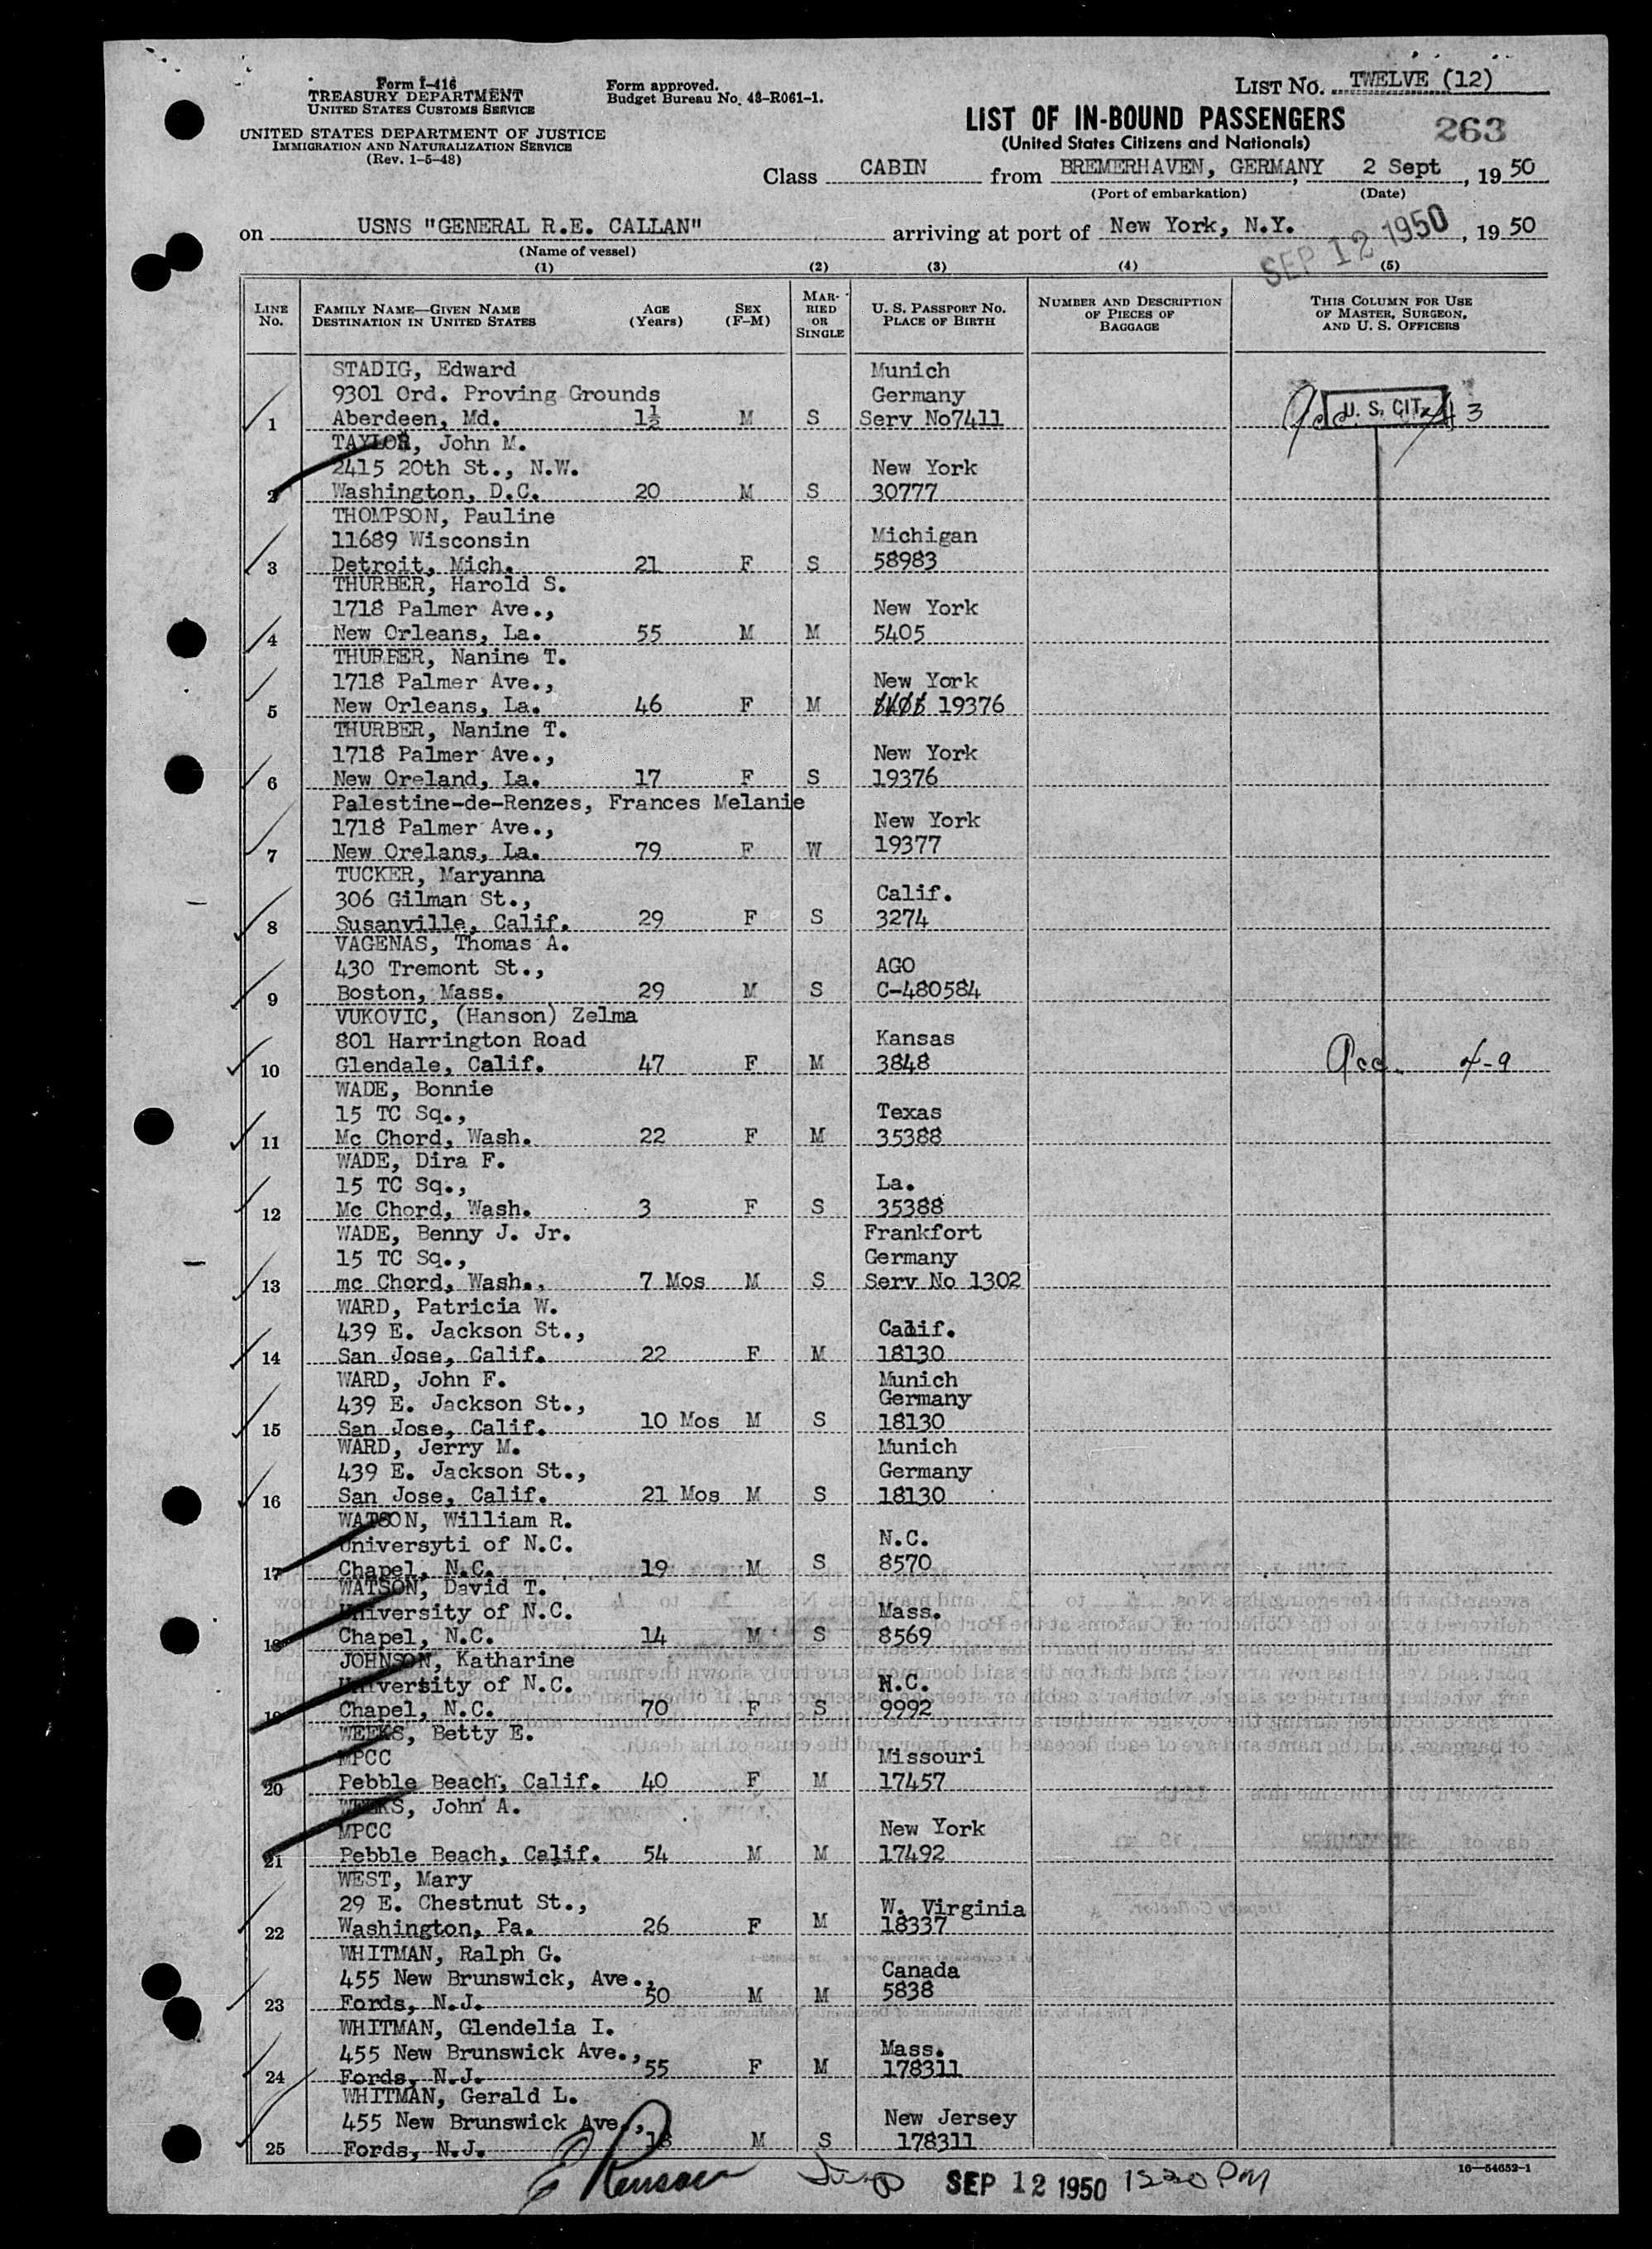 Form I-416
TREASURY DEPARTMENT
UNITED STATES CUSTOMS SERVICE
UNITED STATES DEPARTMENT OF JUSTICE
IMMIGRATION AND NATURALIZATION SERVICE
(Rev. 1-5-48)
Form approved.
Budget Bureau No. 43-R061-1.
LIST NO. TWELVE (12)
LIST OF IN-BOUND PASSENGERS
263
(United States Citizens and Nationals)
Class CABIN from BREMERHAVEN, GERMANY, 2 Sept, 19 50
(Port of embarkation) (Date)
on USNS "GENERAL R.E. CALLAN" arriving at port of New York, N.Y. SEP 12 1950, 19 50
(Name of vessel)
(1) (2) (3) (4) (5)
LINE No. FAMILY NAME—GIVEN NAME DESTINATION IN UNITED STATES AGE (Years) SEX (F-M) MARRIED OR SINGLE U. S. PASSPORT NO. PLACE OF BIRTH NUMBER AND DESCRIPTION OF PIECES OF BAGGAGE THIS COLUMN FOR USE OF MASTER, SURGEON, AND U. S. OFFICERS
STADIG, Edward Munich
9301 Ord. Proving Grounds Germany
1 Aberdeen, Md. 1½ M S Serv No7411 U. S. CIT. 3
TAYLOR, John M.
2415 20th St., N.W. New York
2 Washington, D.C. 20 M S 30777
THOMPSON, Pauline
11689 Wisconsin Michigan
3 Detroit, Mich. 21 F S 58983
THURBER, Harold S.
1718 Palmer Ave., New York
4 New Orleans, La. 55 M M 5405
THURBER, Nanine T.
1718 Palmer Ave., New York
5 New Orleans, La. 46 F M 5405 19376
THURBER, Nanine T.
1718 Palmer Ave., New York
6 New Oreland, La. 17 F S 19376
Palestine-de-Renzes, Frances Melanie
1718 Palmer Ave., New York
7 New Orelans, La. 79 F W 19377
TUCKER, Maryanna
306 Gilman St., Calif.
8 Susanville, Calif. 29 F S 3274
VAGENAS, Thomas A.
430 Tremont St., AGO
9 Boston, Mass. 29 M S C-480584
VUKOVIC, (Hanson) Zelma
801 Harrington Road Kansas
10 Glendale, Calif. 47 F M 3848 Acc. 4-9
WADE, Bonnie
15 TC Sq., Texas
11 Mc Chord, Wash. 22 F M 35388
WADE, Dira F.
15 TC Sq., La.
12 Mc Chord, Wash. 3 F S 35388
WADE, Benny J. Jr. Frankfort
15 TC Sq., Germany
13 mc Chord, Wash., 7 Mos M S Serv No 1302
WARD, Patricia W.
439 E. Jackson St., Calif.
14 San Jose, Calif. 22 F M 18130
WARD, John F. Munich
439 E. Jackson St., Germany
15 San Jose, Calif. 10 Mos M S 18130
WARD, Jerry M. Munich
439 E. Jackson St., Germany
16 San Jose, Calif. 21 Mos M S 18130
WATSON, William R.
Universyti of N.C. N.C.
17 Chapel, N.C. 19 M S 8570
WATSON, David T.
University of N.C. Mass.
18 Chapel, N.C. 14 M S 8569
JOHNSON, Katharine
University of N.C. N.C.
19 Chapel, N.C. 70 F S 9992
WEEKS, Betty E.
MPCC Missouri
20 Pebble Beach, Calif. 40 F M 17457
WEEKS, John A.
MPCC New York
21 Pebble Beach, Calif. 54 M M 17492
WEST, Mary
29 E. Chestnut St., W. Virginia
22 Washington, Pa. 26 F M 18337
WHITMAN, Ralph G.
455 New Brunswick, Ave., Canada
23 Fords, N.J. 50 M M 5838
WHITMAN, Glendelia I.
455 New Brunswick Ave., Mass.
24 Fords, N.J. 55 F M 178311
WHITMAN, Gerald L.
455 New Brunswick Ave., New Jersey
25 Fords, N.J. 18 M S 178311
16—54652-1
SEP 12 1950 1230 PM